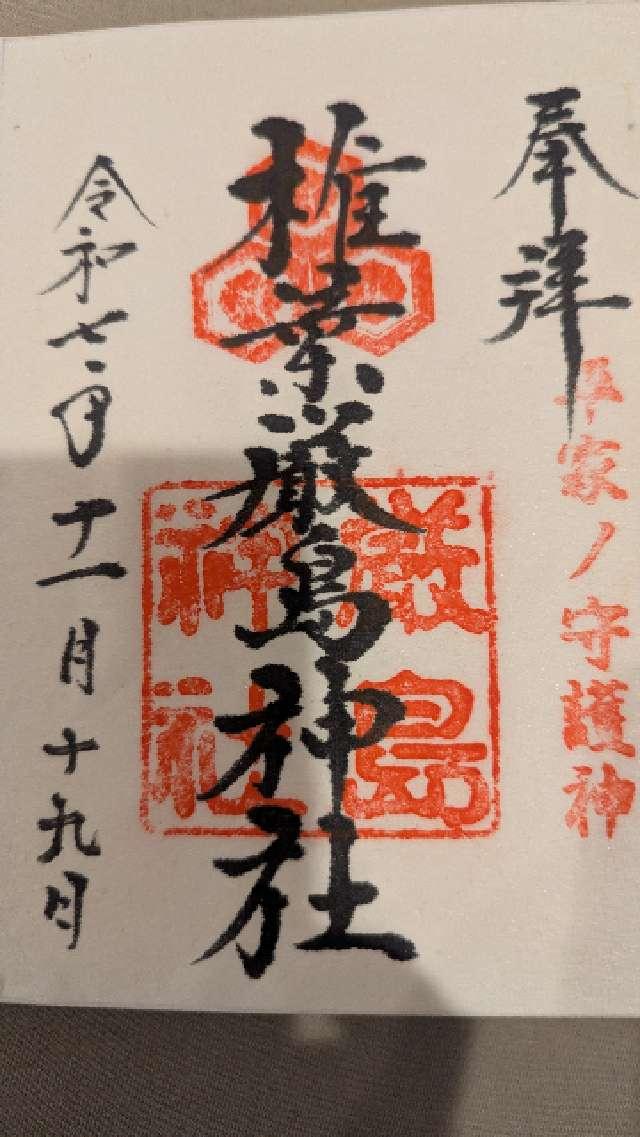 奉拝
平家ノ守護神
椎葉厳島神社
厳島
神社
令和七年十一月十九日